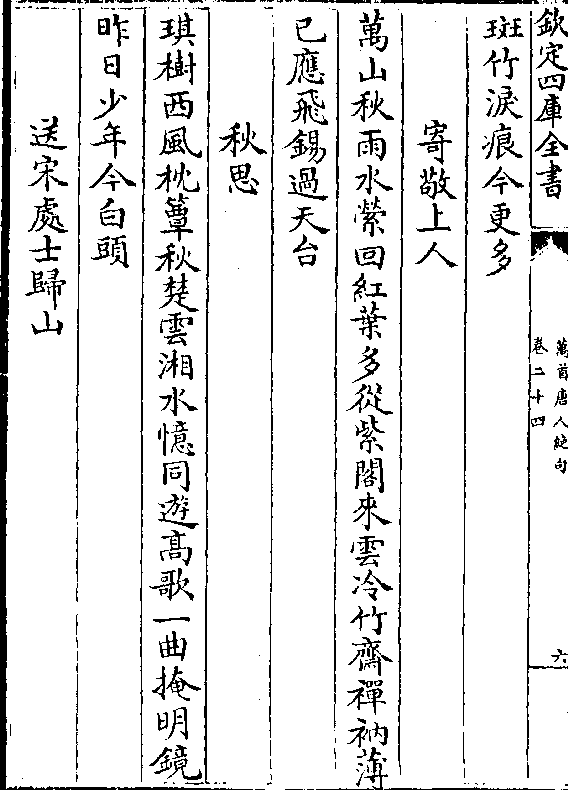 欽定四庫全書
萬首唐人絕句
卷二十四
六
斑竹淚痕今更多
寄敬上人
萬山秋雨水縈回紅葉多從紫閣來雲冷竹齋禪衲薄
已應飛錫過天台
秋思
琪樹西風枕簟秋楚雲湘水憶同遊髙歌一曲掩明鏡
昨日少年今白頭
送宋處士歸山